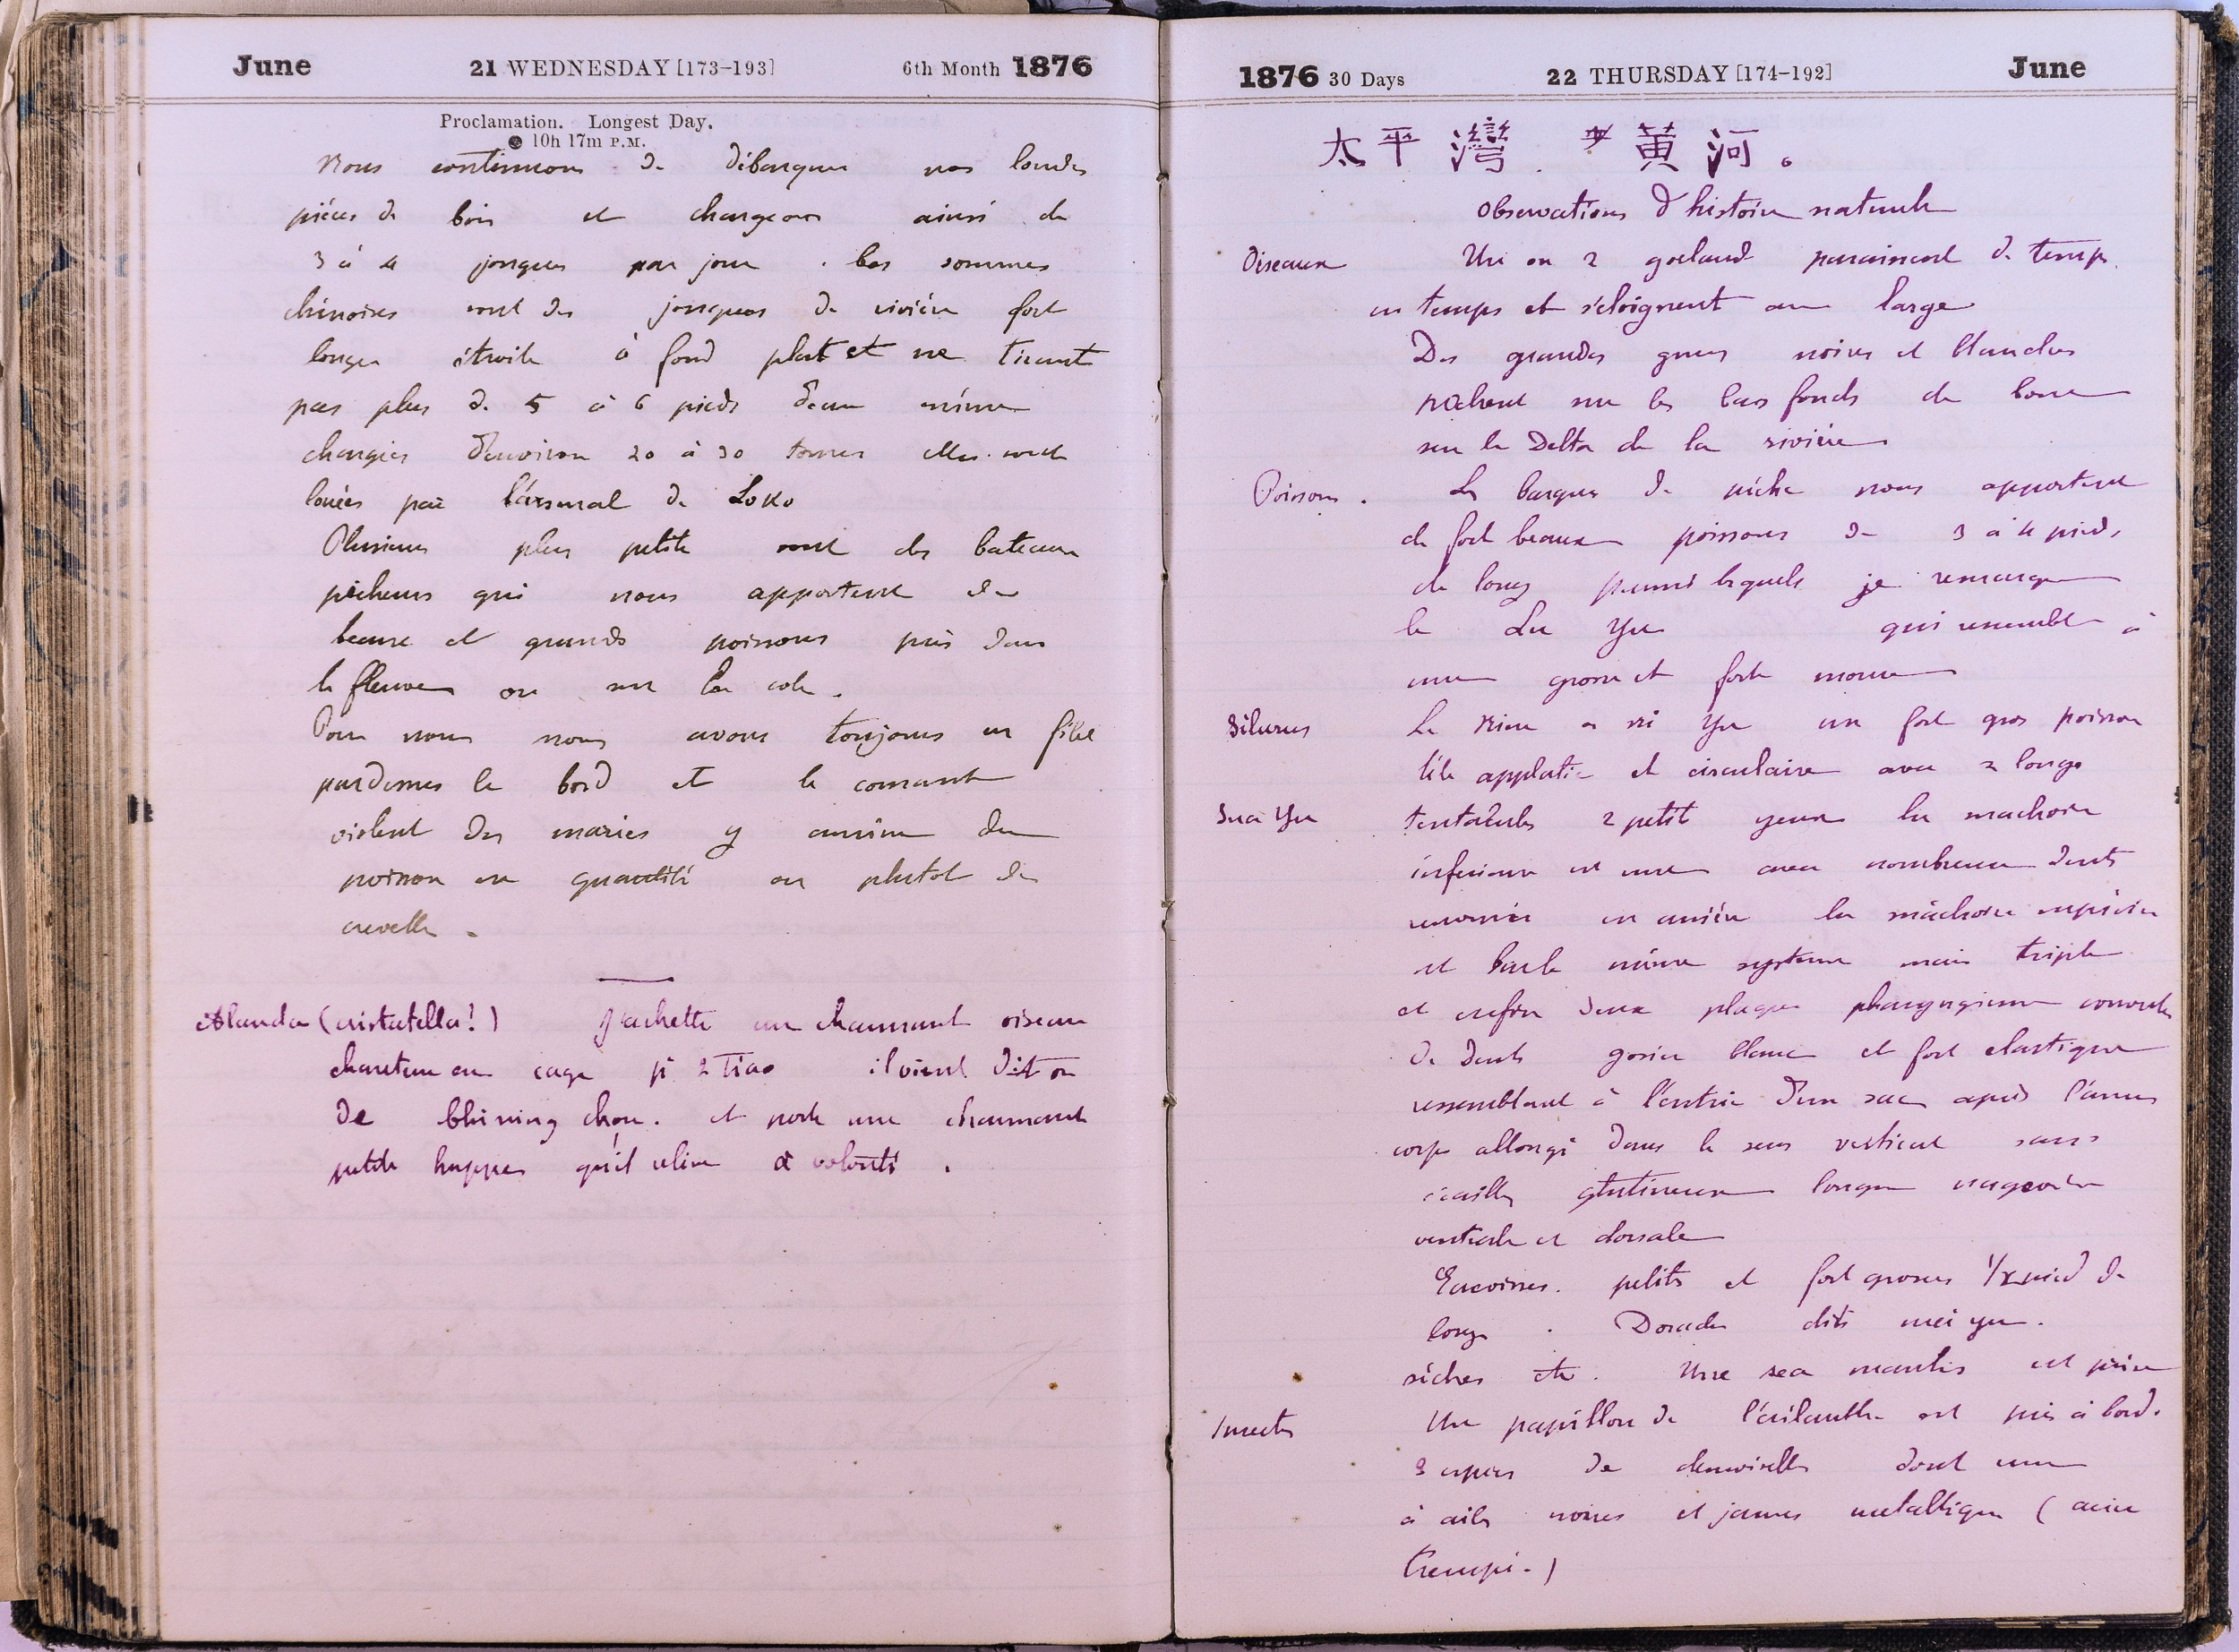 June 21 WEDNESDAY [173-193] 6th Month 1876
Proclamation. Longest Day.
● 10h 17m P.M.
Nous continuons de débarquer nos lourdes
pièces de bois et chargeons ainsi de
3 à 4 jonques par jour. Les sommes
chinoises sont des jonques de rivière fort
longue étroite à fond plat et ne tirant
pas plus de 5 à 6 pieds d'eau même
chargées d'environ 20 à 30 tonnes elles sont
louées par l'arsenal de Loko
Plusieurs plus petite sont des bateaux
pêcheurs qui nous apportent de
beaux et grands poissons pris dans
le fleuve ou sur la cote.
Pour nous nous avons toujours un filet
pardessus le bord et le courant
violent des marées y amène du
poisson en quantité ou plutot de
crevette.
Alauda (cristatella!) J'achette un charmant oiseau
chanteur en cage pr 2 Tiao il vient dit on
de Chining chou. et porte une charmante
petite huppe qu'il relève à volonté.
1876 30 Days 22 THURSDAY [174-192] June
太平灣. 黃河。
Observations d'histoire naturelle
Oiseaux Un ou 2 goeland paraissent de temps
en temps et s'éloignent au large
Des grandes grues noires et blanches
pêchent sur les bas fonds de boue
sur le Delta de la rivière
Poissons. Les barques de pêche nous apportent
de fort beaux poissons de 3 à 4 pieds
de long parmi lesquels je remarque
le Lu Yu qui ressemble à
une grosse et forte morue
Silurus Le Nien a ni Yu un fort gros poisson
tête applatie et circulaire avec 2 longs
Sua Yu tentacules 2 petit yeux la machoire
inferieure est une avec nombreuse dents
en arrière la mâchoire supérieure
et même systeme mais triple
et enfin deux plaque pharyngienne couverte
de dents gosier blanc et fort elastique
ressemblant à l'entrée d'un sac après l'anus
corps allongé dans le sens vertical sans
écailles glutineux longue nageoire
ventrale et dorsale
petits et fort grosses 1/2 pied de
long. Dorades dits mei yu.
sèches etc. Une sea mantis est prise
Insectes Un papillon de l'ailanthe est pris à bord.
3 especes de demoiselles dont une
à ailes noires et jaunes metallique (acier
trempé.)